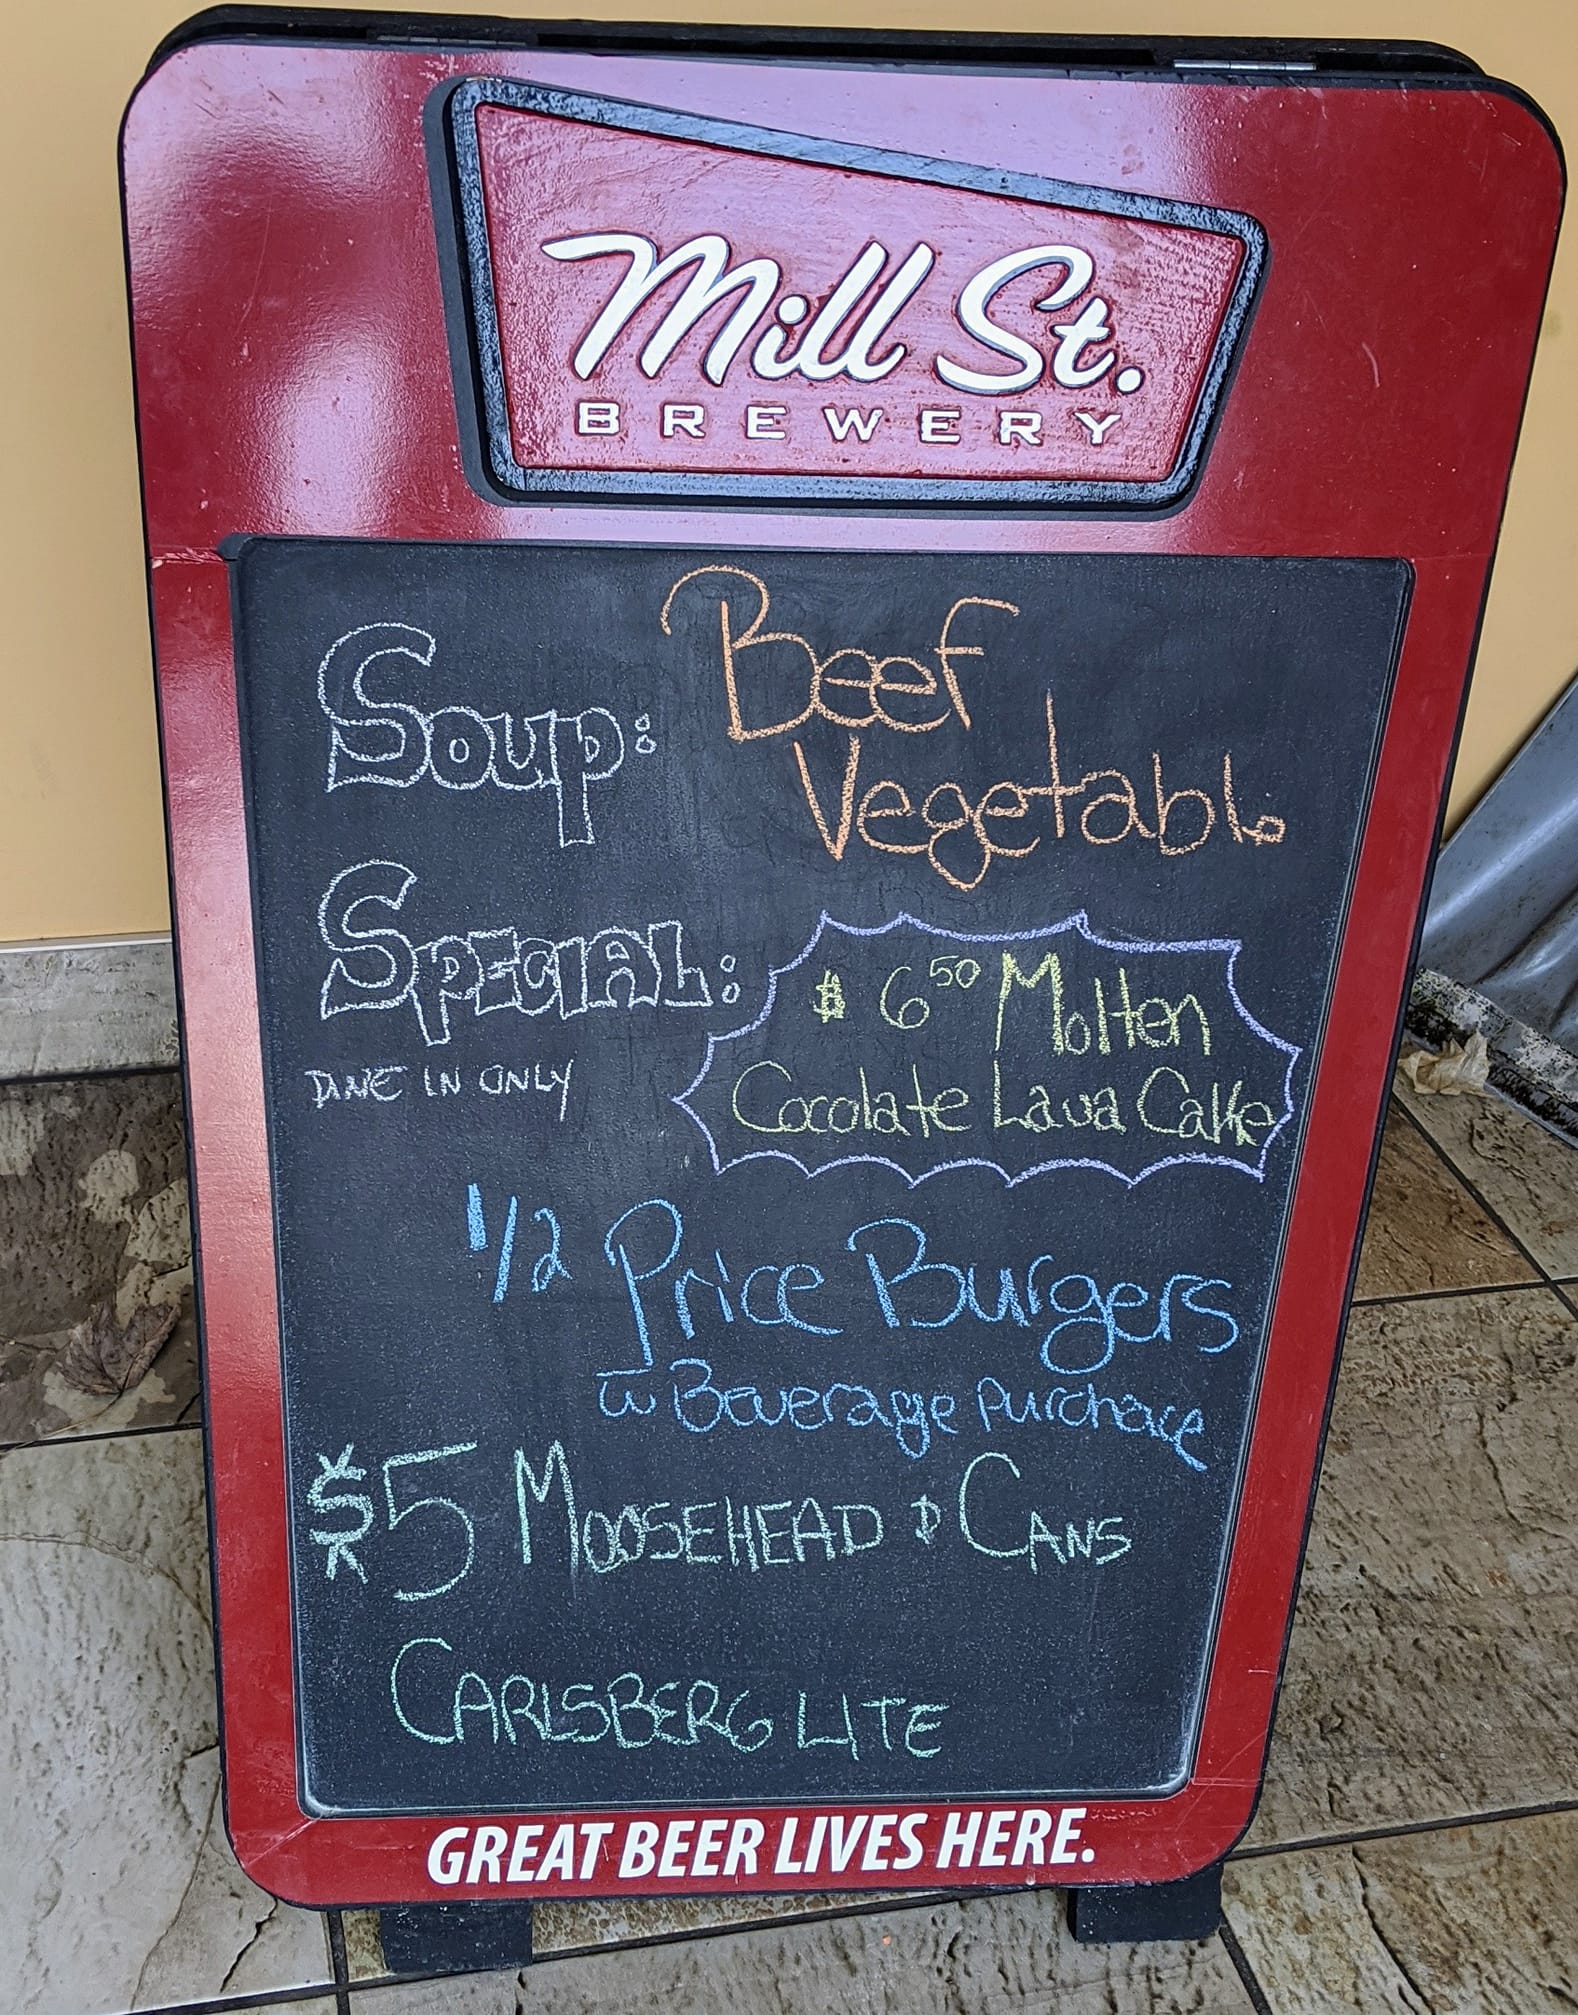 Mill St.
BREWERY
Soup: Beef
Vegetable
Special: $6.50 Molten
DINE IN ONLY Cocolate Lava Cake
1/2 Price Burgers
w Beverage Purchase
$5 MOOSEHEAD & CANS
CARLSBERG LITE
GREAT BEER LIVES HERE.